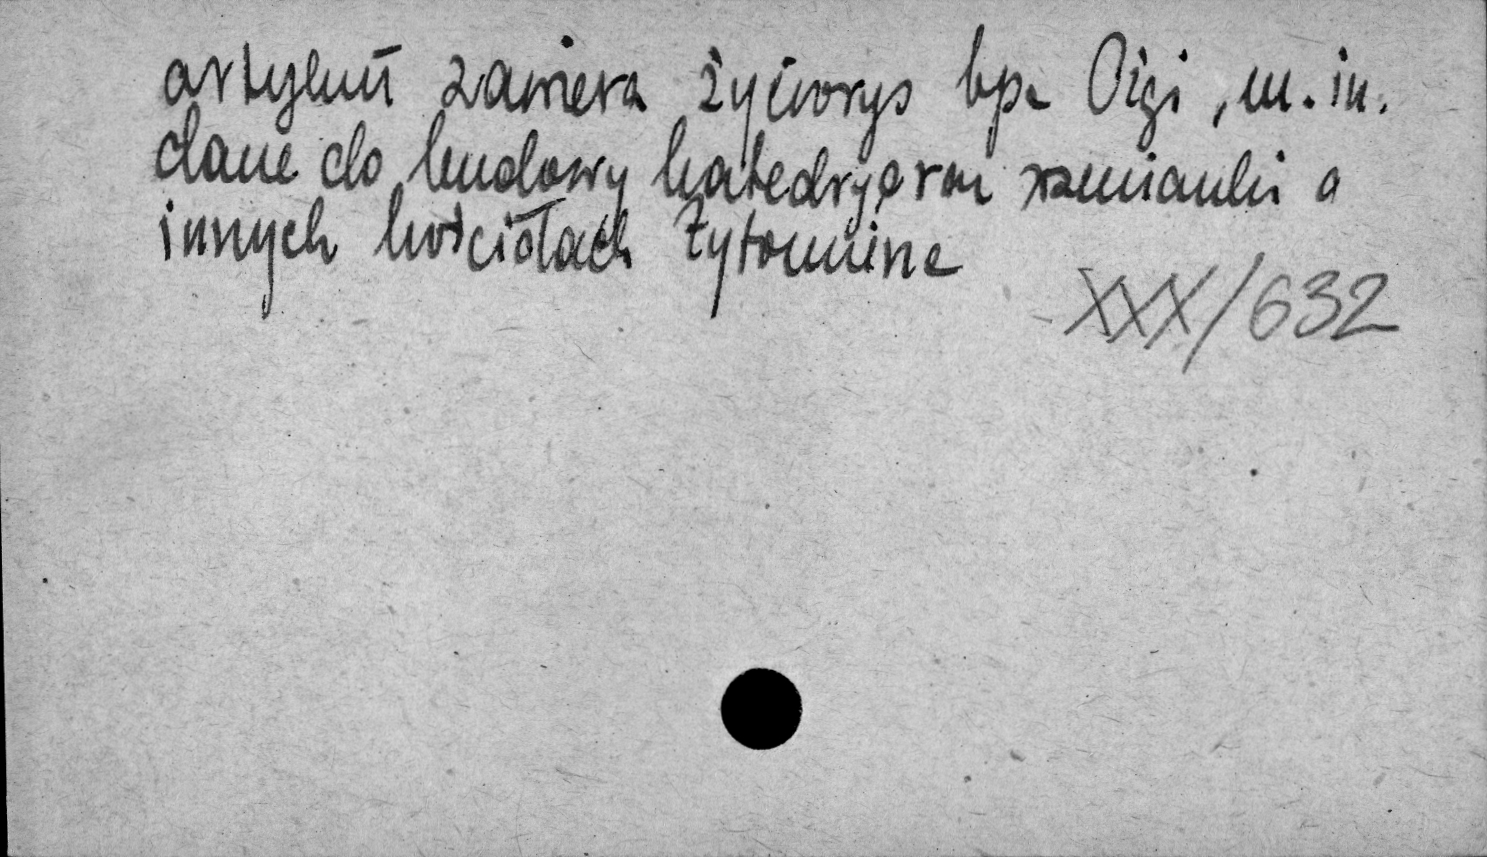 artykuł zawiera życiorys bpa Ożgi, m.in.
dane do budowy katedry oraz wzmianki o
innych kościołach Żytomierza
XXX/632